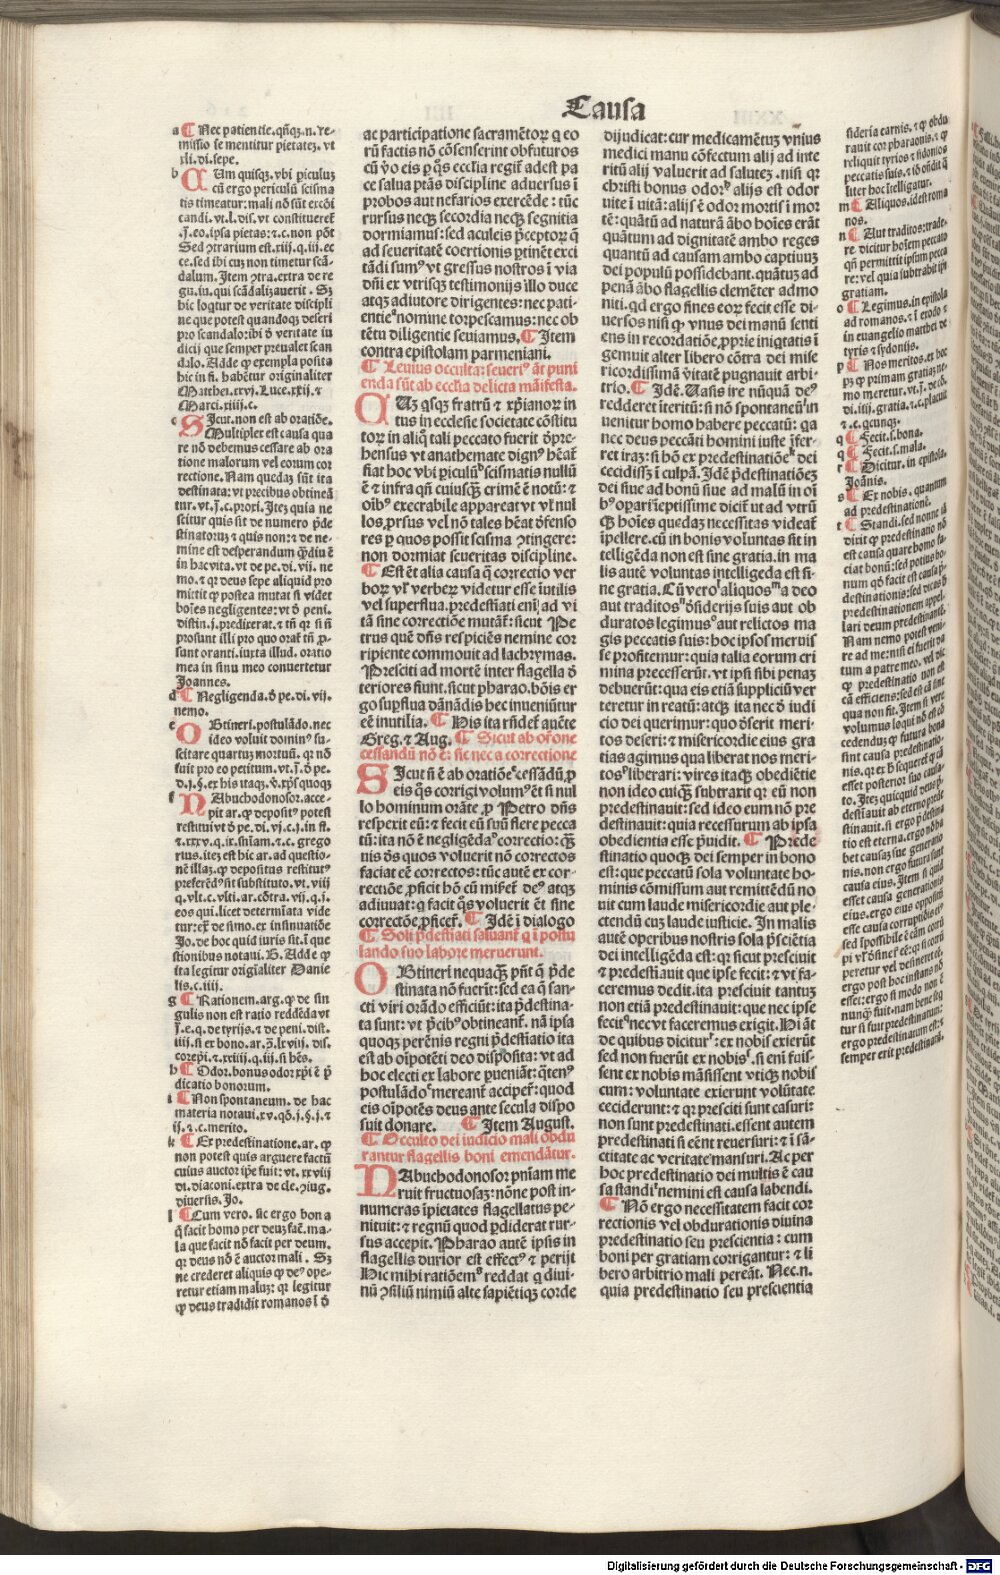 Causa
a ¶ Nec patientie. qñqꝫ. n. re-
missio se mentitur pietateꝫ. vt
xli. di. sepe.
b CUm quisqꝫ. vbi piculuꝫ
cũ ergo periculũ scisma
tis timeatur: mali nõ sũt excõi
candi. vt. l. dis. vt constitueret̃
.ĩ. eo. ipsa pietas: ⁊. c. non põt
Sed ꝯtrarium est. xiij. q. iij. ec
ce. sed ibi cuꝫ non timetur scã-
dalum. Item ꝯtra. extra de re
gu. iu. qui scãdaliʒauerit. Sꝫ
hic loq̃tur de veritate discipli
ne que potest quandoqꝫ deseri
pro scandalo: ibi ð veritate iu
dicij que semper preualet scan
dalo. Adde ꝙ exempla posita
hic in fi. habẽtur originaliter
Matthei. xxvj. Luce. xxij. ⁊
Marci. xiiij. c.
c SIcut. non est ab oratiõe.
Multiplex est causa qua
re nõ debemus cessare ab ora
tione malorum vel eorum cor
rectione. Nam quedaꝫ sũt ita
destinata: vt precibus obtineã
tur. vt. j. c. proxi. Iteꝫ quia ne
scitur quis sit de numero p̃de
stinatoruꝫ ⁊ quis non: ⁊ de ne-
mine est desperandum q̃diu ẽ
in hac vita. vt de pe. di. vij. ne
mo. ⁊ qꝛ deus sepe aliquid pro
mittit ꝙ postea mutat si videt
hoĩes negligentes: vt ð peni.
distin. j. predixerat. ⁊ tñ qꝛ si ñ
prosunt illi pro quo orat̃ tñ ꝓ-
sunt oranti. iuxta illud. oratio
mea in sinu meo conuertetur
Joannes.
d ¶ Negligenda. ð pe. di. vij.
nemo.
e OBtineri. postulãdo. nec
ideo voluit dominꝰ su-
scitare quartuꝫ mortuũ. qꝛ nõ
fuit pro eo petitum. vt. j. ð pe.
d. j. §. ex his itaqꝫ. ℣. xp̃s quoqꝫ
f NAbuchodonosor. acce-
pit ar. ꝙ depositꝰ potest
restitui vt ð pe. di. vj. c. j. in fi.
⁊. xxv. q. ix. sniam. ⁊. c. grego
rius. iteꝫ est hic ar. ad questio-
nẽ illaꝫ. ꝙ depositus restitutꝰ
preferẽdꝰ sit substituto. vt. viij
q. vlt. c. vlti. ar. cõtra. vij. q. j.
eos qui. licet determĩata vide
tur: ex̃ de simo. ex insinuatiõe
Jo. de hoc quid iuris sit. ĩ que
stionibus notaui. B. Adde ꝙ
ita legitur origĩaliter Danie
lis. c. iiij.
g ¶ Rationem. arg. ꝙ de sin
gulis non est ratio reddẽda vt
ĩ. e. q. de tyrijs. ⁊ de peni. dist.
iiij. si ex bono. ar. ꝯ̃. lxviij. dis.
corep̃i. ⁊. xxiiij. q. iij. si hẽs.
h ¶ Odor. bonus odor xp̃i ẽ p̃
dicatio bonorum.
i ¶ Non spontaneum. de hac
materia notaui. xv. qõ. j. §. j. ⁊
ij. ⁊. c. merito.
k ¶ Ex predestinatione. ar. ꝙ
non potest quis arguere factũ
cuius auctor ip̃e fuit: vt. xxviij
di. diaconi. extra de cle. ꝯiug.
diuersis. Jo.
l ¶ Cum vero. sic ergo bona
q̃ facit homo per deuꝫ facit̃. ma-
la que facit nõ facit per deum.
qꝛ deus nõ ẽ auctor mali. Sꝫ
ne crederet aliquis ꝙ deꝰ ope-
retur etiam maluꝫ: qꝛ legitur
ꝙ deus tradidit romanos ĩ ð
ac participatione sacramẽtorꝝ q eo
rũ factis nõ cõsenserint obfuturos
cũ ꝟo eis p q̃s ecclia regit̃ adest pa
ce salua ptãs discipline aduersus ĩ
probos aut nefarios exercẽde: tũc
rursus necꝫ secordia necꝫ segnitia
dormiamus: sed aculeis p̃ceptorꝝ q̃
ad seueritatẽ coertionis ꝑtinẽt exci
tãdi sumꝰ vt gressus nostros ĩ via
dñi ex vtrisqꝫ testimonijs illo duce
atqꝫ adiutore dirigentes: nec pati-
entie nomine torpescamus: nec ob
tẽtu diligentie seuiamus. ¶ Item
contra epistolam parmeniani.
¶ Leuius occulta: seueriꝰ aũt puni
enda sũt ab ecclia delicta mãifesta.
QUʒ qsqꝫ fratrũ ⁊ xp̃ianorꝝ in
tus in ecclesie societate cõstitu
torꝝ in aliq̃ tali peccato fuerit ðpre-
hensus vt anathemate dignꝰ hẽat̃
fiat hoc vbi piculũ scismatis nullũ
ẽ ⁊ infra qñ cuiusqꝫ crimẽ ẽ notũ: ⁊
oibꝰ execrabile appareat vt vĺ nul
los ꝓrsus vel nõ tales hẽat ðfenso
res p quos possit scisma ꝯtingere:
non dormiat seueritas discipline.
¶ Est ẽt alia causa q̃ correctio ver
borꝝ vĺ verberꝝ videtur esse ĩutilis
vel superflua. predestiati enĩ ad vi
tã sine correctiõe mutãt̃: sicut Pe
trus quẽ dñs respiciẽs nemine cor
ripiente commouit ad lachrymas.
Presciti ad mortẽ inter flagella ð
teriores fiunt. sicut pharao. bõis er
go supflua dãnãdis hec inueniũtur
eẽ inutilia. ¶ His ita rñdet̃ aucte
Greg. ⁊ Aug. ¶ Sicut ab or̃one
cessandũ nõ ẽ: sic nec a correctione
SIcut ñ ẽ ab oratiõe cessãdũ ꝓ
eis q̃s corrigi volumꝰ ẽt si nul
lo hominum orãte ꝓ Petro dñs
respexit eũ: ⁊ fecit eũ suũ flere pecca
tũ: ita nõ ẽ negligẽda correctio: q̃ꝫ
uis ðs quos voluerit nõ correctos
faciat eẽ correctos: tũc autẽ ex cor-
rectiõe ꝓficit hõ cũ miseret̃ deꝰ atqꝫ
adiuuat: q facit q̃s voluerit ẽt sine
correctõe ꝓficer̃. ¶ Idẽ ĩ dialogo
¶ Soli p̃destiati saluant̃ q ĩ postu
lando suo labore meruerunt.
OBtineri nequaq̃ꝫ pñt q̃ p̃de
stinata nõ fuerĩt: sed ea q̃ san-
cti viri orãdo efficiũt: ita p̃destina-
ta sunt: vt p̃cibꝰ obtineant̃. nã ipsa
quoqꝫ perẽnis regni p̃destiatio ita
est ab oĩpotẽti deo disposita: vt ad
hoc electi ex labore ꝑueniãt: q̃tenꝰ
postulãdo mereant̃ accipeř: quod
eis oĩpotẽs deus ante secula dispo
suit donare. ¶ Item August.
¶ Occulto dei iudicio mali obdu
rantur flagellis boni emendãtur.
NAbuchodonosor pniam me
ruit fructuosaꝫ: nõne post in-
numeras ĩpietates flagellatus pe-
nituit: ⁊ regnũ quod ꝑdiderat rur-
sus accepit. Pharao autẽ ipsis in
flagellis durior est effectꝰ ⁊ perijt
Hic mihi ratiõem reddat q diui-
nũ ꝯsiliũ nimiũ alte sapiẽtiqꝫ corde
dijudicat: cur medicamẽtuꝫ vnius
medici manu cõfectum alij ad inte
ritũ alij valuerit ad saluteꝫ. nisi qꝛ
christi bonus odor alijs est odor
vite ĩ uitã: alijs ẽ odor mortis ĩ mor
tẽ: quãtũ ad naturã ãbo hoĩes erãt
quãtum ad dignitatẽ ambo reges
quantũ ad causam ambo captiuuꝫ
dei populũ possidebant. quãtuꝫ ad
penã ãbo flagellis clemẽter admo
niti. qd ergo fines eorꝝ fecit esse di-
uersos nisi ꝙ vnus dei manũ senti
ens in recordatiõe ꝓprie iniqtatis ĩ
gemuit alter libero cõtra dei mise
ricordissimã vitatẽ pugnauit arbi-
trio. ¶ Idẽ. Uasis ire nũquã deꝰ
redderet ĩteritũ: si nõ spontaneũ in
uenitur homo habere peccatũ: qa
nec deus peccãti homini iuste ĩfer-
ret iraꝫ: si hõ ex predestinatiõe dei
cecidissꝫ ĩ culpã. Idẽ p̃destinatiõeꝫ
dei siue ad bonũ siue ad malũ in oĩ
bꝰ oparijñeptissime dicit̃ ut ad vtrũ
qꝫ hoĩes quedaꝫ necessitas videat̃
ĩpellere. cũ in bonis voluntas sit in
telligẽda non est sine gratia. in ma
lis autẽ voluntas intelligẽda est si-
ne gratia. Cũ vero aliquos a deo
aut traditos ðsiderijs suis aut ob
duratos legimus aut relictos ma
gis peccatis suis: hoc ipsos meruis
se profitemur: quia talia eorum cri
mina precesserũt. vt ipsi sibi penaꝫ
debuerũt: qua eis etiã suppliciũ ver
teretur in reatũ: atqꝫ ita nec ð iudi
cio dei querimur: quo ðserit meri-
tos deseri: ⁊ misericordie eius gra
tias agimus qua liberat nos meri-
tos liberari: vires itaqꝫ obediẽtie
non ideo cuiqꝫ subtraxit qꝛ eũ non
predestinauit: sed ideo eum nõ pre
destinauit: quia recessurum ab ipsa
obedientia esse p̃uidit. ¶ Prede
stinatio quoqꝫ dei semper in bono
est: que peccatũ sola voluntate ho-
minis cõmissum aut remittẽdũ no
uit cum laude misericordie aut ple-
ctendũ cuꝫ laude iusticie. In malis
autẽ operibus nostris sola p̃sciẽtia
dei intelligẽda est: qꝛ sicut presciuit
⁊ predestiauit que ipse fecit: ⁊ vt fa-
ceremus dedit. ita presciuit tantuꝫ
non etiã predestinauit: que nec ipse
fecit nec vt faceremus exigit. Hi ãt
de quibus dicitur: ex nobis exierũt
sed non fuerũt ex nobis. si eni fuis-
sent ex nobis mãsissent vtiqꝫ nobis
cum: voluntate exierunt volũtate
ceciderunt: ⁊ qꝛ presciti sunt casuri:
non sunt predestinati. essent autem
predestinati si eẽnt reuersuri: ⁊ ĩ sã-
ctitate ac veritate mansuri. Ac per
hoc predestinatio dei multis ẽ cau
sa standi nemini est causa labendi.
¶ Nõ ergo necessitatem facit cor
rectionis vel obdurationis diuina
predestinatio seu prescientia: cum
boni per gratiam corrigantur: ⁊ li
bero arbitrio mali pereãt. Nec. n.
quia predestinatio seu prescientia
sideria carnis. ⁊ ꝙ obdu
rauit cor pharaonis. ⁊ ꝙ
reliquit tyrios ⁊ sidonios
peccatis suis. ⁊ iõ oñdit q̃
liter hoc ĩtelligatur.
m ¶ Aliquos. idest roma
nos.
n ¶ Aut traditos: trade-
re dicitur hoĩem peccato
qñ permittit ipsum pecca
re: vel quia subtrahit ipi
gratiam.
o ¶ Legimus. in epistola
ad romanos. ⁊ ĩ exodo ⁊
in euangelio matthei de
tyris ⁊ sydonijs.
p ¶ Nos meritos. ex hoc
pꝫ ꝙ primam gratiaꝫ ne-
mo meretur. vt. j. de cõ.
di. iiij. gratia. ⁊. c. placuit
⁊. c. qcunqꝫ.
q ¶ Fecit. s. bona.
q ¶ Fecit. s. mala.
r ¶ Dicitur. in epistola.
Joãnis.
s ¶ Ex nobis. quantum
ad predestinationẽ.
t ¶ Standi. sed nonne iã
dixit ꝙ predestinatio nõ
est causa quare homo fa-
ciat bonũ: sed potius bo-
num qð facit est causa p̃-
destinationis: sed dicas ð
predestinationem appel-
lari deum predestinantẽ.
Nam nemo potest veni-
re ad me: nisi ei fuerit da
tum a patre meo. vel dic
ꝙ predestinatio non est
cã efficiens: sed est cã sine
qua non fit. Item si vere
volumus loqui nõ est cõ
cedenduꝫ ꝙ futura bona
sint causa predestinatio-
nis. qꝛ ex h̃ sequeret̃ ꝙ cã
esset posterior suo causa-
to. Iteꝫ quicquid deus p̃-
destĩauit ab eterno prede
stinauit. si ergo p̃destina
tio est eterna. ergo nõ ha
bet causaꝫ sue generatio
nis. non ergo futura sunt
causa eius. Item si quid
esset causa generationis
eius. ergo eius oppositũ
esset causa corruptiõis eiꝰ
sed ĩpossibile ẽ eam corrũ
pi vĺ ðsiner̃ eẽ: qꝛ si corrũ
peretur vel desineret eẽ.
ergo post hoc instans nõ
esset: ergo si modo non ẽ
nunq̃ fuit. nam bene seq̃
tur si fuit predestinatum:
ergo predestinatum est: ⁊
semper erit predestinatũ.
Digitalisierung gefördert durch die Deutsche Forschungsgemeinschaft - DFG